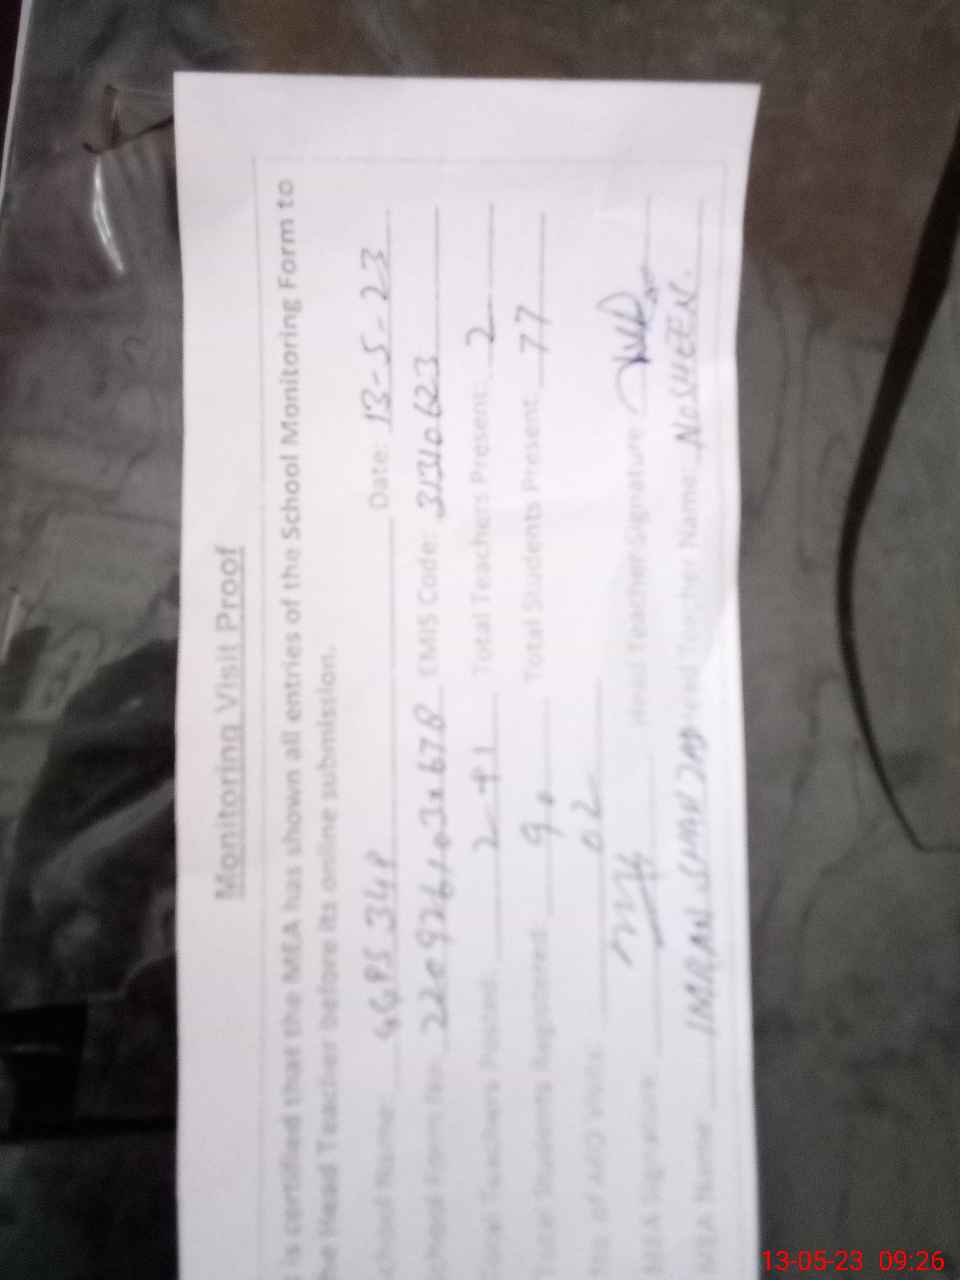 Monitoring Visit Proof
is certified that the MEA has shown all entries of the School Monitoring Form to
Head Teacher before its online submission.
School Name: GGPS 34P Date: 13-5-23
School Form No: EMIS Code: 31310623
Total Teachers Posted: 2+1 Total Teachers Present: 2
Total Students Registered: 90 Total Students Present: 77
No. of AEO Visits: 02
MEA Signature Head Teacher Signature
MEA Name: IMRAN Teacher Name: NOSHEEN.
13-05-23 09:26